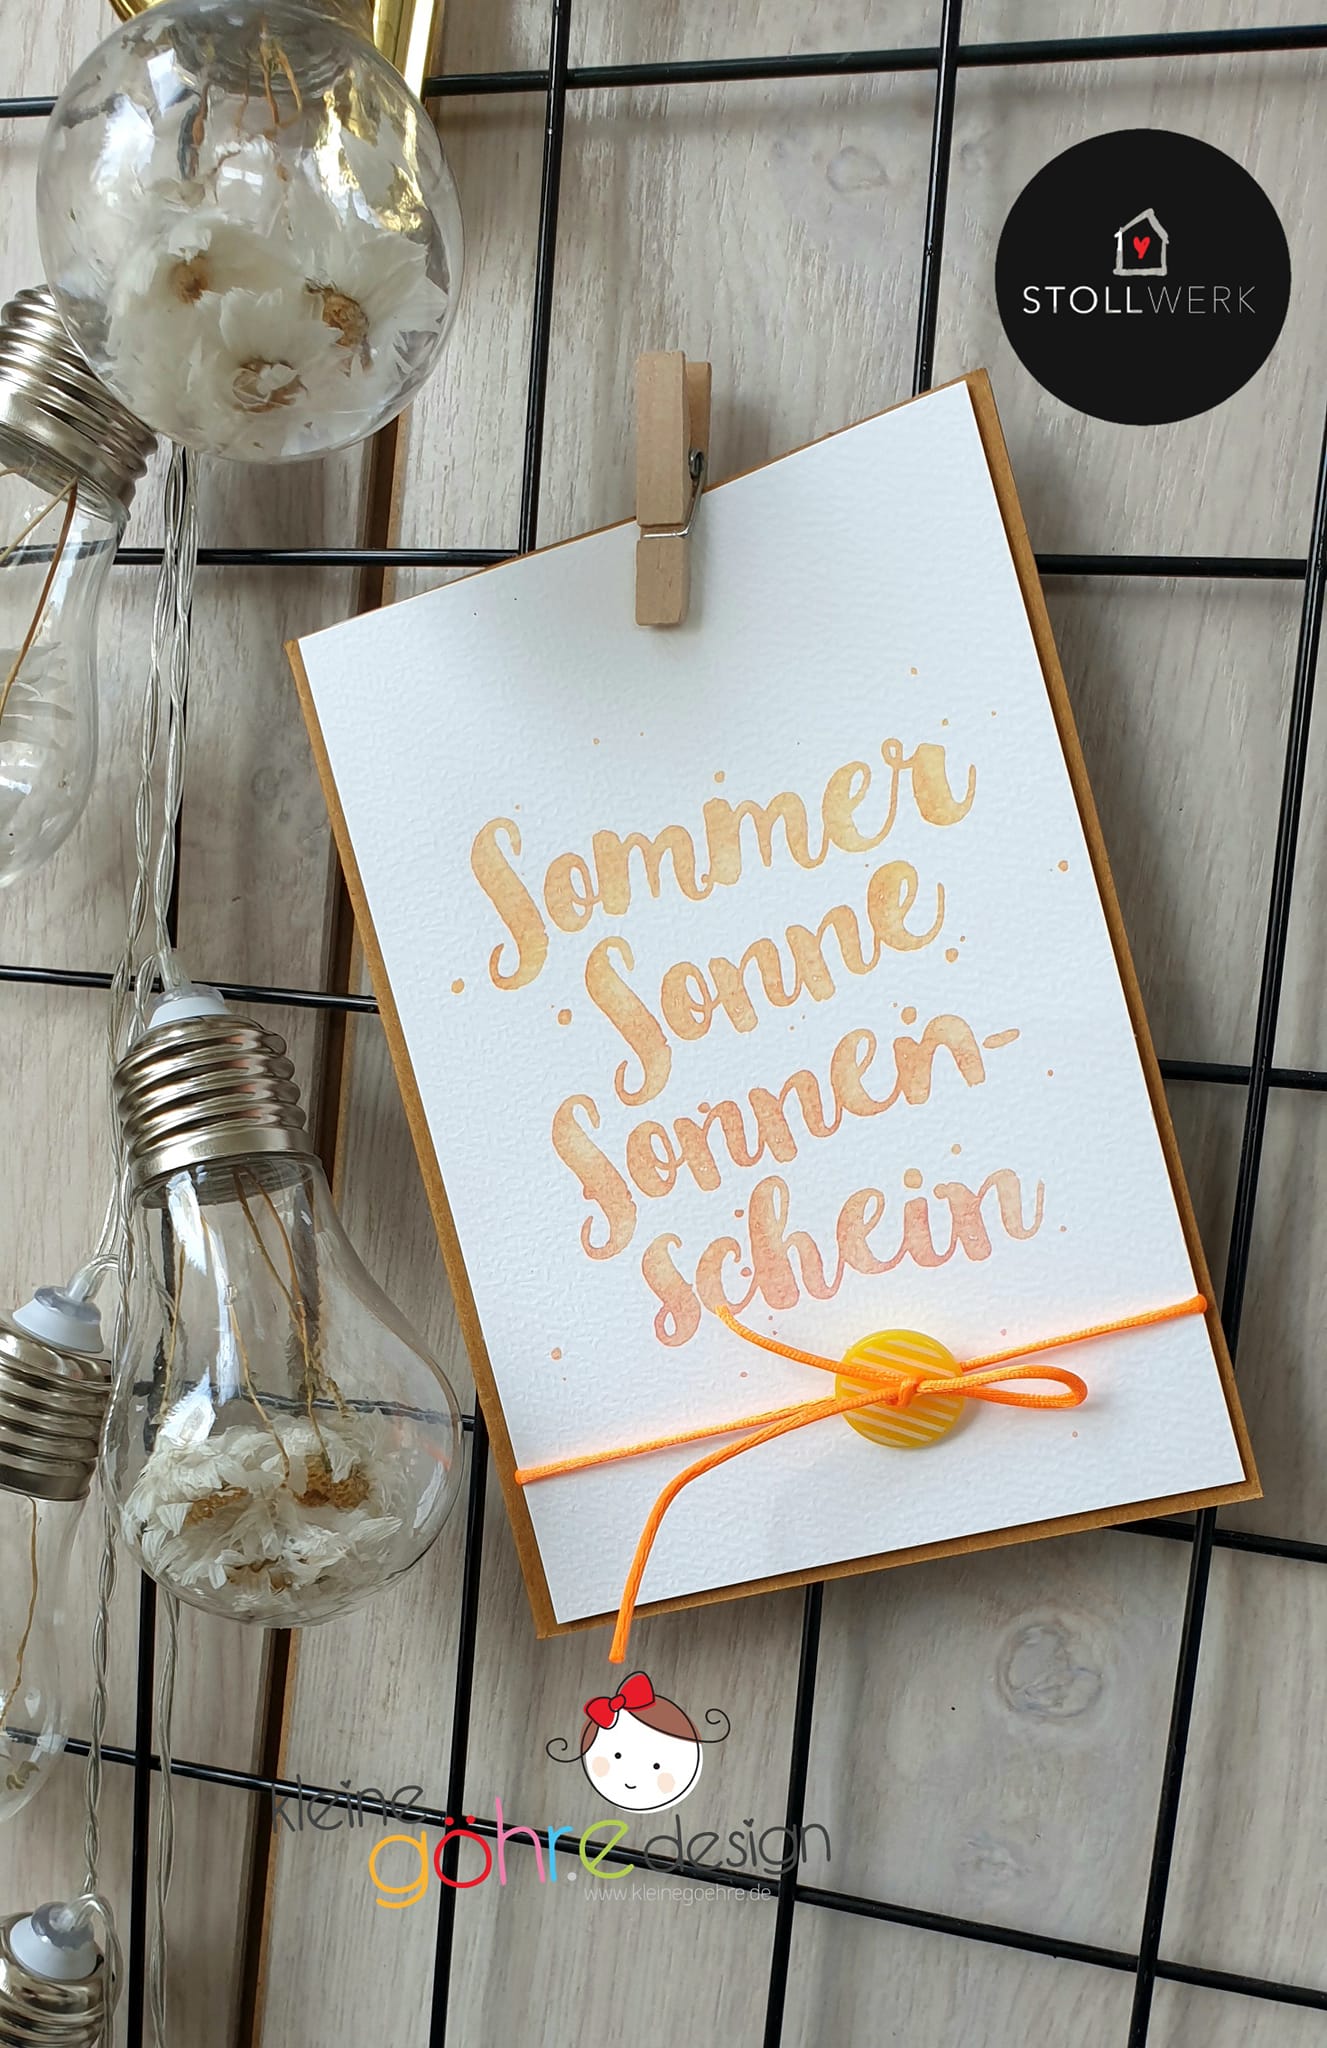 STOLLWERK
Sommer
Sonne
Sonnen-
schein
kleine
göhr.e design
www.kleinegoehre.de